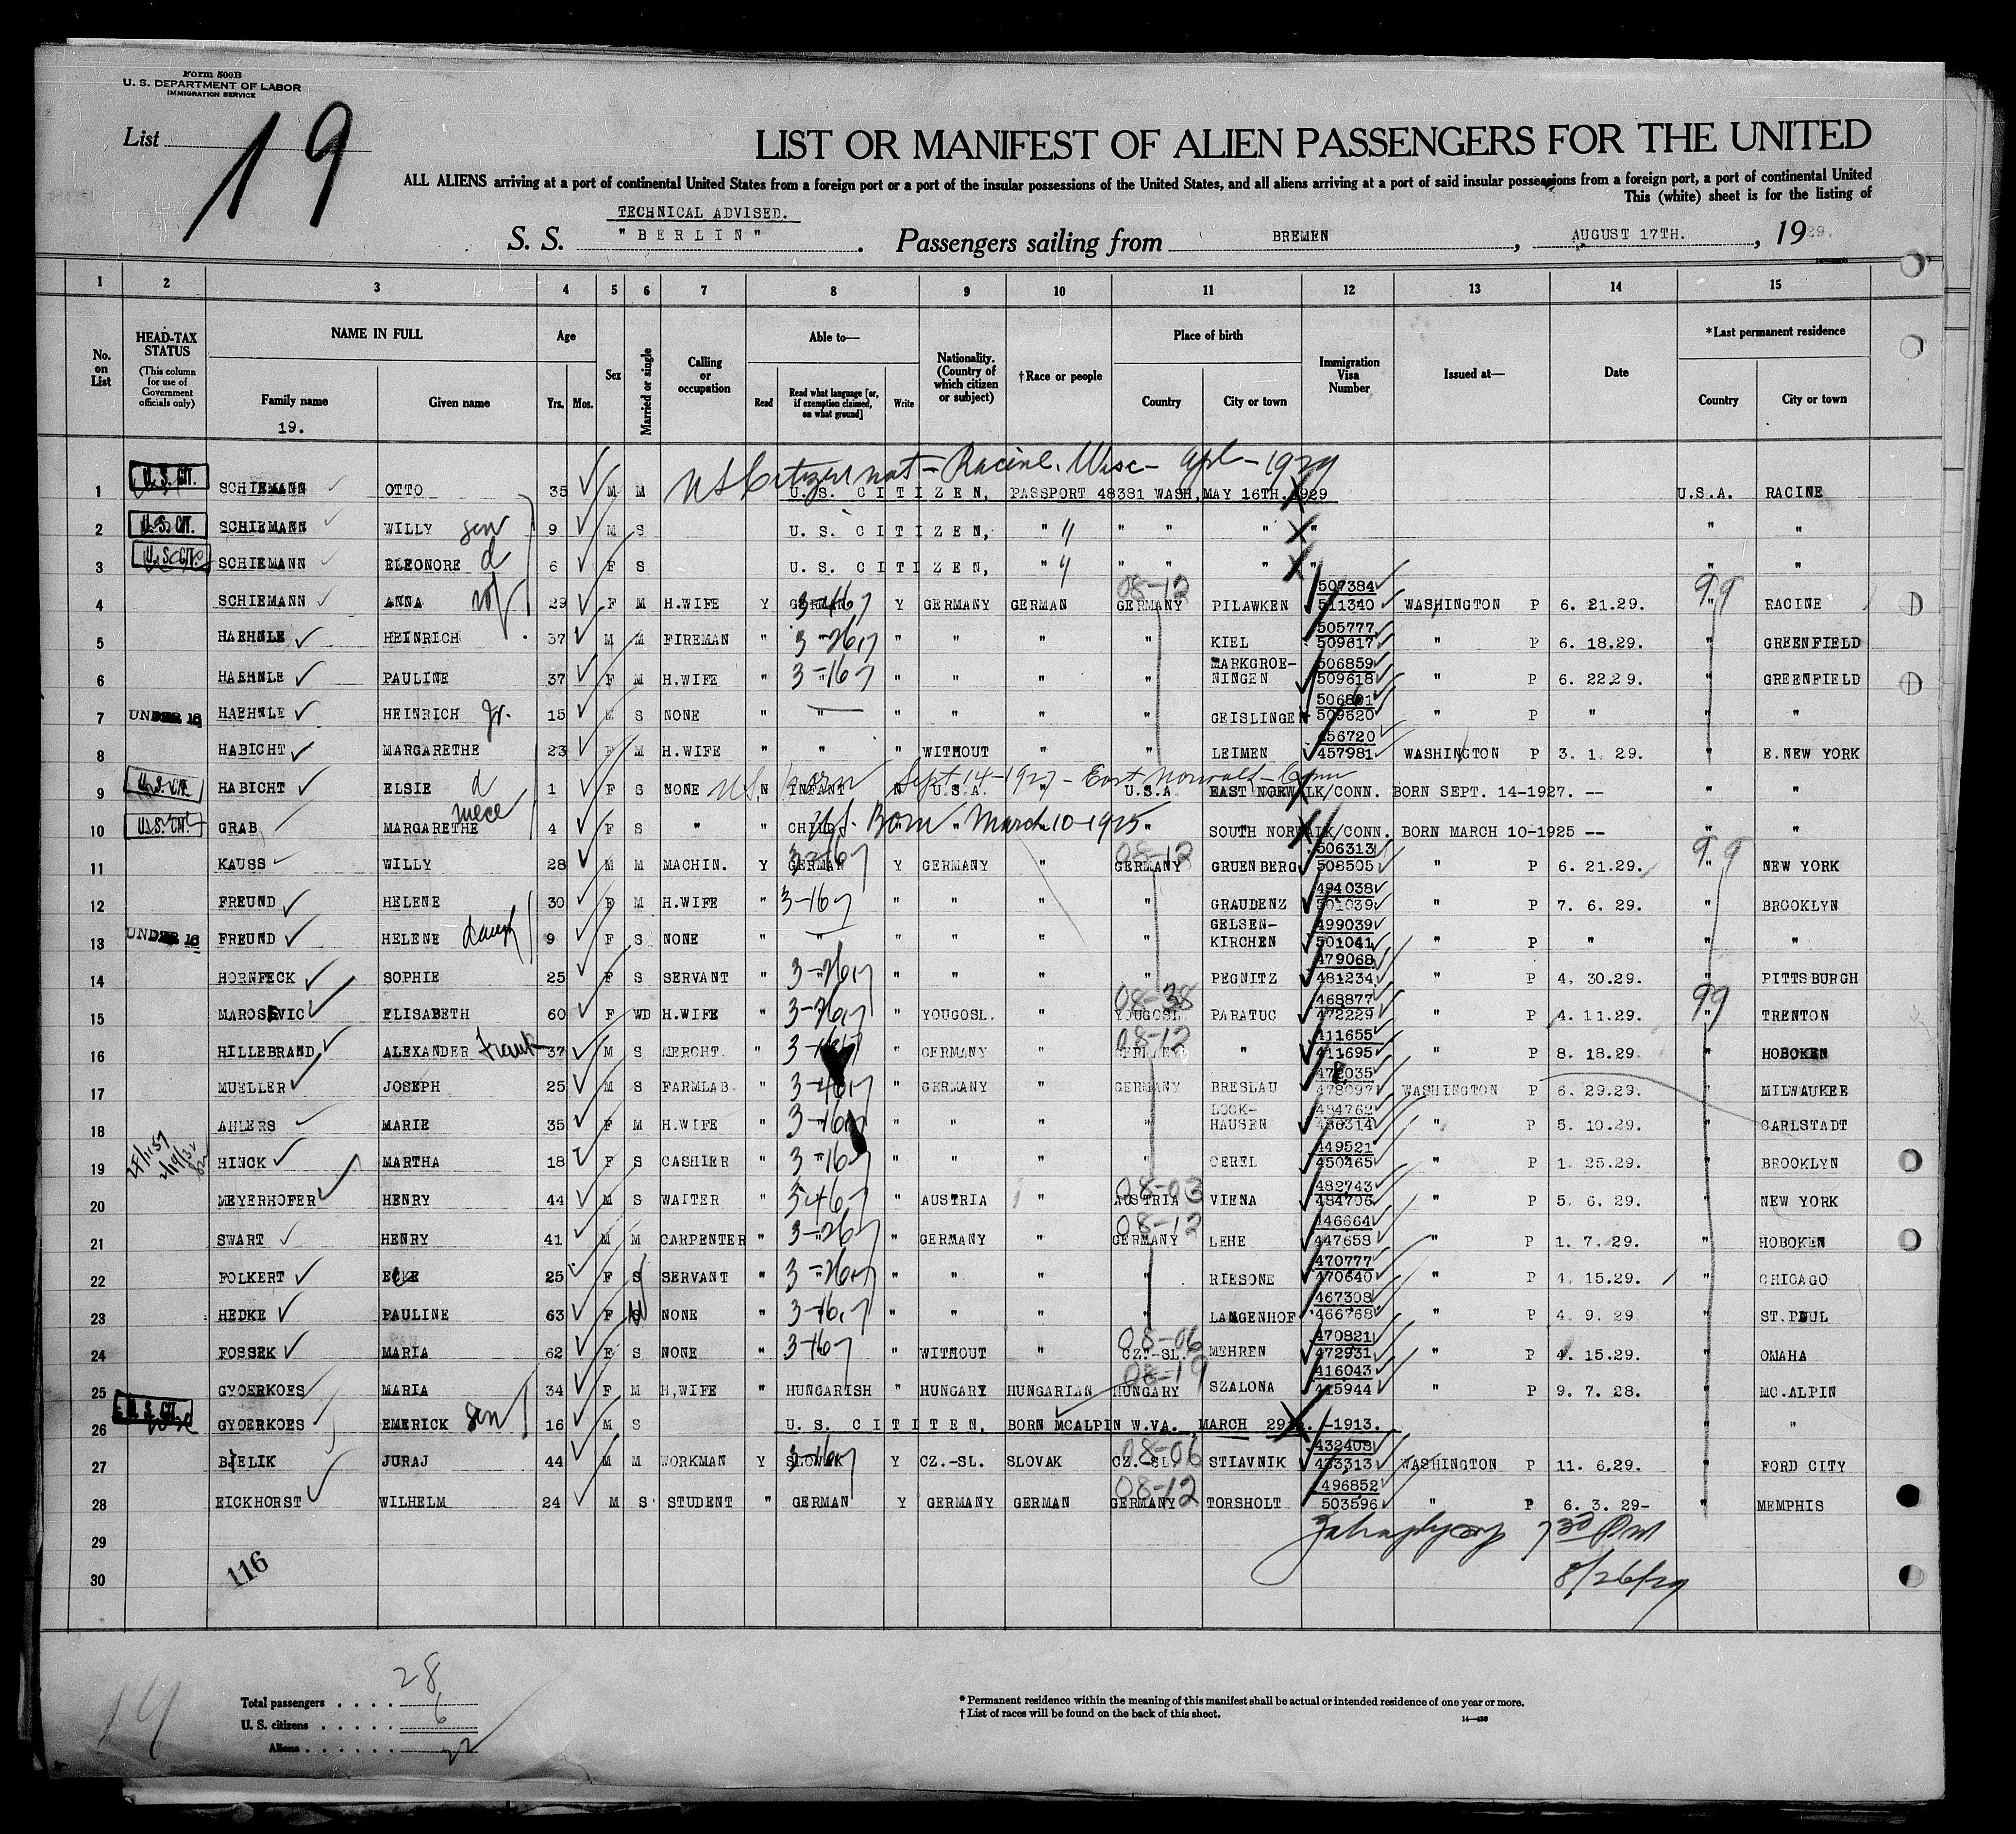 Form 500B
U. S. DEPARTMENT OF LABOR
IMMIGRATION SERVICE
List 19
LIST OR MANIFEST OF ALIEN PASSENGERS FOR THE UNITED
ALL ALIENS arriving at a port of continental United States from a foreign port or a port of the insular possessions of the United States, and all aliens arriving at a port of said insular possessions from a foreign port, a port of continental United
This (white) sheet is for the listing of
TECHNICAL ADVISED.
S. S. "BERLIN". Passengers sailing from BREMEN, AUGUST 17TH., 1929.
1 2 3 4 5 6 7 8 9 10 11 12 13 14 15
No. on List
HEAD-TAX STATUS
(This column for use of Government officials only)
NAME IN FULL
Family name
19.
Given name
Age
Yrs. Mos.
Sex
Married or single
Calling or occupation
Able to—
Read
Read what language [or, if exemption claimed, on what ground]
Write
Nationality. (Country of which citizen or subject)
†Race or people
Place of birth
Country
City or town
Immigration Visa Number
Issued at—
Date
*Last permanent residence
Country
City or town
US Citizen nat - Racine, Wisc - Apl - 1929
1 U.S. CIT. SCHIEMANN OTTO 35 M M U.S. CITIZEN, PASSPORT 48381 WASH, MAY 16TH. 1929 U.S.A. RACINE
2 U.S. CIT. SCHIEMANN WILLY son 9 M S U.S. CITIZEN, " " " " " " " "
3 U.S. CIT. SCHIEMANN ELEONORE d 6 F S U.S. CITIZEN, " " " " " " " "
4 SCHIEMANN ANNA wf 29 F M H.WIFE Y GERMAN 3-16 Y GERMANY GERMAN 08-12 GERMANY PILAWKEN 507384 511340 WASHINGTON P 6. 21.29. 99 " RACINE
5 HAEHNLE HEINRICH 37 M M FIREMAN " 3-26 " " " " KIEL 505777 509617 " P 6. 18.29. " GREENFIELD
6 HAEHNLE PAULINE 37 F M H.WIFE " 3-16 " " " " MARKGROE-NINGEN 506859 509618 " P 6. 22.29. " GREENFIELD
7 UNDER 16 HAEHNLE HEINRICH Jr. 15 M S NONE " " " " " " GEISLINGEN 506801 509620 " P " " "
8 HABICHT MARGARETHE 23 F M H.WIFE " " " WITHOUT " " LEIMEN 456720 457981 WASHINGTON P 3. 1. 29. " E.NEW YORK
US born Sept 14-1927 - East Norwalk - Conn
9 U.S. CIT. HABICHT ELSIE d 1 F S NONE N INFANT N U.S.A. " U.S.A EAST NORWALK/CONN. BORN SEPT. 14-1927. -- " "
U.S. Born March 10-1925
10 U.S. CIT. GRAB MARGARETHE niece 4 F S " " CHILD " " " " SOUTH NORWALK/CONN. BORN MARCH 10-1925 -- " "
11 KAUSS WILLY 28 M M MACHIN. Y GERMAN 3-16 Y GERMANY " 08-12 GERMANY GRUENBERG 506313 508505 " P 6. 21.29. 99 " NEW YORK
12 FREUND HELENE 30 F M H.WIFE " 3-16 " " " " GRAUDENZ 494038 501039 " P 7. 6. 29. " BROOKLYN
13 UNDER 16 FREUND HELENE daugh 9 F S NONE " " " " " " GELSEN-KIRCHEN 499039 501041 " P " " "
14 HORNFECK SOPHIE 25 F S SERVANT " 3-26 " " " " PEGNITZ 479068 481234 " P 4. 30.29. " PITTSBURGH
15 MAROSEVIC ELISABETH 60 F WD H.WIFE " 3-26 " YOUGOSL. " 08-38 YOUGOSL. PARATUC 468877 472229 " P 4. 11.29. 99 " TRENTON
16 HILLEBRAND ALEXANDER Frank 37 M S MERCHT. " " GERMANY " 08-12 GERMANY " 411655 411695 " P 8. 18.29. " HOBOKEN
17 MUELLER JOSEPH 25 M S FARMLAB. " 3-46 " GERMANY " GERMANY BRESLAU 472035 478097 WASHINGTON P 6. 29.29. " MILWAUKEE
18 AHLERS MARIE 35 F M H.WIFE " 3-16 " " " " LOCK-HAUSEN 484762 486314 " P 5. 10.29. " CARLSTADT
19 HINCK MARTHA 18 F S CASHIER " 3-16 " " " " OEREL 449521 450465 " P 1. 25.29. " BROOKLYN
20 MEYERHOFER HENRY 44 M S WAITER " 3-46 " AUSTRIA " 08-03 AUSTRIA VIENA 482743 484706 " P 5. 6. 29. " NEW YORK
21 SWART HENRY 41 M M CARPENTER " 3-26 " GERMANY " 08-12 GERMANY LEHE 446664 447658 " P 1. 7. 29. " HOBOKEN
22 FOLKERT 25 F S SERVANT " 3-26 " " " " RIESONE 470777 470640 " P 4. 15.29. " CHICAGO
23 HEDKE PAULINE 63 F W NONE " 3-16 " " " " LANGENHOF 467308 466768 " P 4. 9. 29 " ST.PAUL
24 FOSSEK MARIA 62 F S NONE " 3-16 " WITHOUT " 08-06 CZ.-SL. MEHREN 470821 472931 " P 4. 15.29. " OMAHA
25 GYOERKOES MARIA 34 F M H,WIFE " HUNGARISH " HUNGARY HUNGARIAN 08-19 HUNGARY SZALONA 416043 415944 " P 9. 7. 28. " MC.ALPIN
26 U.S. CIT. GYOERKOES EMERICK son 16 M S U.S. CITITEN, BORN MCALPIN W.VA., MARCH 29 -1913. " "
27 BJELIK JURAJ 44 M M WORKMAN Y SLOVAK 3-16 Y CZ.-SL. SLOVAK 08-06 CZ.-SL. STIAVNIK 432408 433313 WASHINGTON P 11. 6.29. " FORD CITY
28 EICKHORST WILHELM 24 M S STUDENT " GERMAN Y GERMANY GERMAN 08-12 GERMANY TORSHOLT 496852 503596 " P 6. 3. 29- " MEMPHIS
29 7 30 PM
30 116 8/26/29
Total passengers . . . . 28
U. S. citizens . . . . . 6
Aliens . . . . . . 22
19
* Permanent residence within the meaning of this manifest shall be actual or intended residence of one year or more.
† List of races will be found on the back of this sheet.